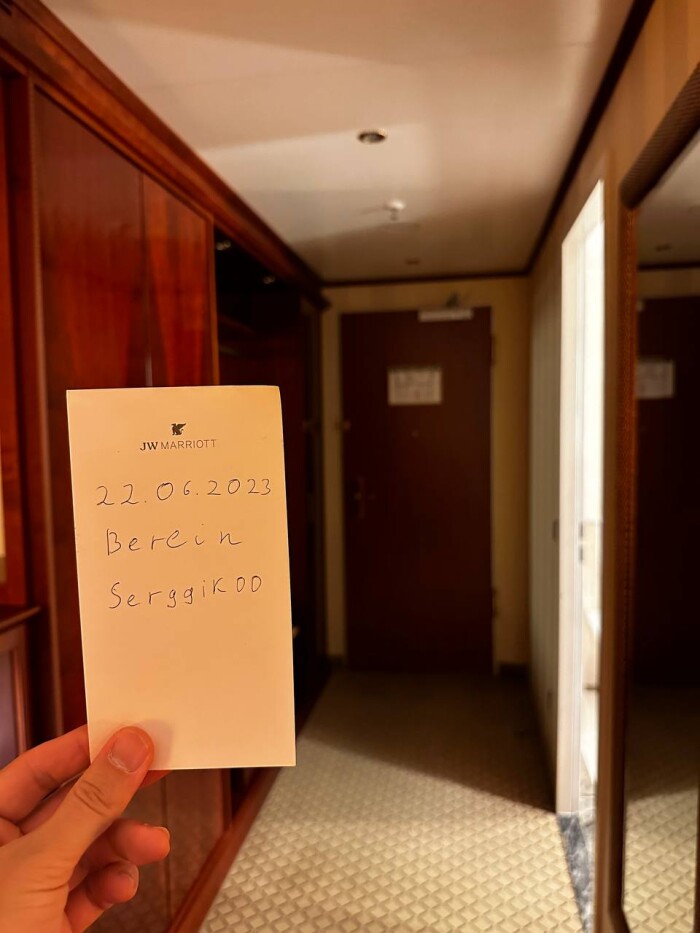 JW MARRIOTT
22.06.2023
Berein
Serggik00